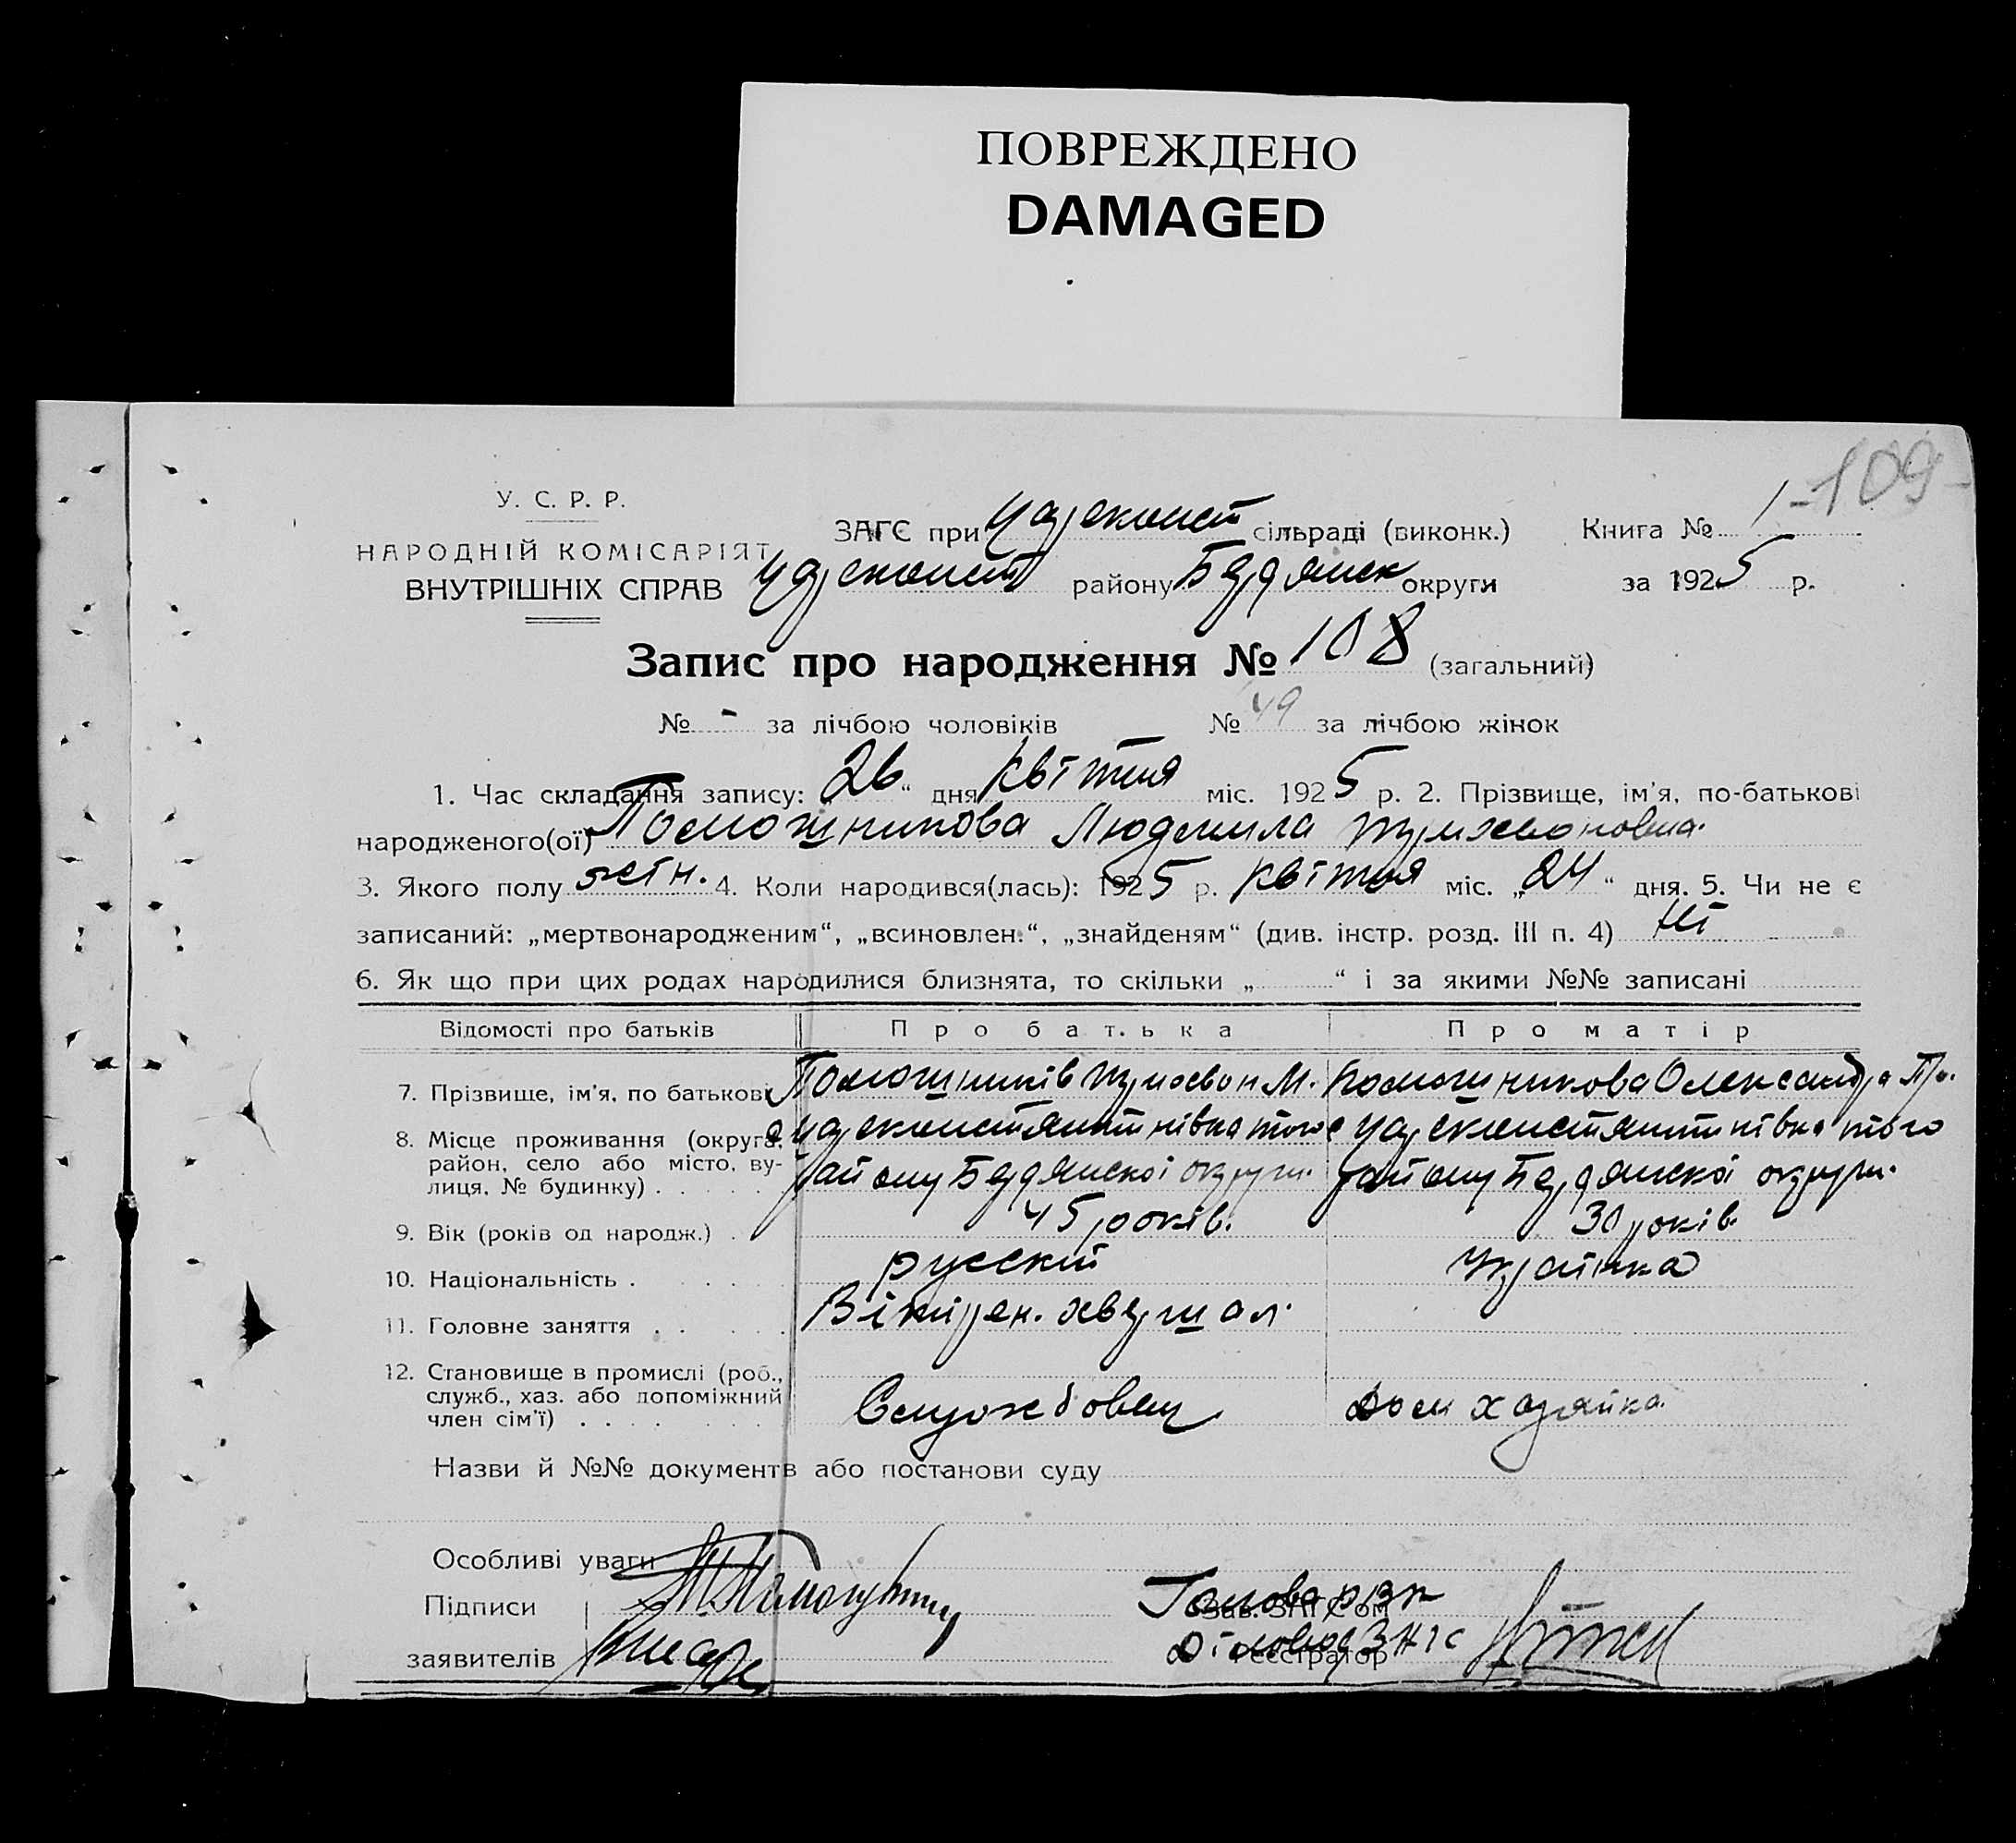 ПОВРЕЖДЕНО
DAMAGED
-109-
У. С. Р. Р.
НАРОДНІЙ КОМІСАРІЯТ
ВНУТРІШНІХ СПРАВ
ЗАГС при Царсконст сільраді (виконк.) Книга № 1
Царсконст району Бердянск округи за 1925 р.
Запис про народження № 108 (загальний)
№ - за лічбою чоловіків № 49 за лічбою жінок
1. Час складання запису: „26“ дня квітня міс. 1925 р. 2. Прізвище, ім'я, по-батькові
народженого(ої) Помошникова Людмила
3. Якого полу жін. 4. Коли народився(лась): 1925 р. квітня міс. „24“ дня. 5. Чи не є
записаний: „мертвонародженим“, „всиновлен.“, „знайденям“ (див. інстр. розд. III п. 4) ні
6. Як що при цих родах народилися близнята, то скільки „ “ і за якими №№ записані
Відомості про батьків Про батька Про матір
7. Прізвище, ім'я, по батькові Помошників М. Помошникова Олександра
8. Місце проживання (округа, район, село або місто, вулиця, № будинку) . . .
с Царсконстянтинівка того с Царсконстянтинівка того
району Бердянскої округи. району Бердянскої округи.
9. Вік (років од народж.) . 45 років. 30 років.
10. Національність . русскій Українка
11. Головне заняття . . Вітірен. хвершал.
12. Становище в промислі (роб., служб., хаз. або допоміжний член сім'ї) . . . .
Службовець Дом хазяйка.
Назви й №№ документів або постанови суду
Особливі уваги
Підписи Голова
Зав. ЗАГС'ом
заявителів Діловод ЗАГС
Реєстратор